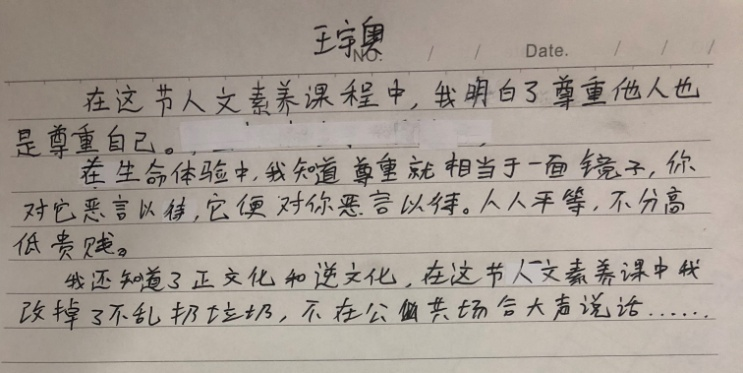 王宇奥
NO. / / Date. / / /
在这节人文素养课程中,我明白了尊重他人也
是尊重自己。
在生命体验中,我知道尊重就相当于一面镜子,你
对它恶言以待,它便对你恶言以待。人人平等,不分高
低贵贱。
我还知道了正文化和逆文化,在这节人文素养课中我
改掉了不乱扔垃圾,不在公共场合大声说话……